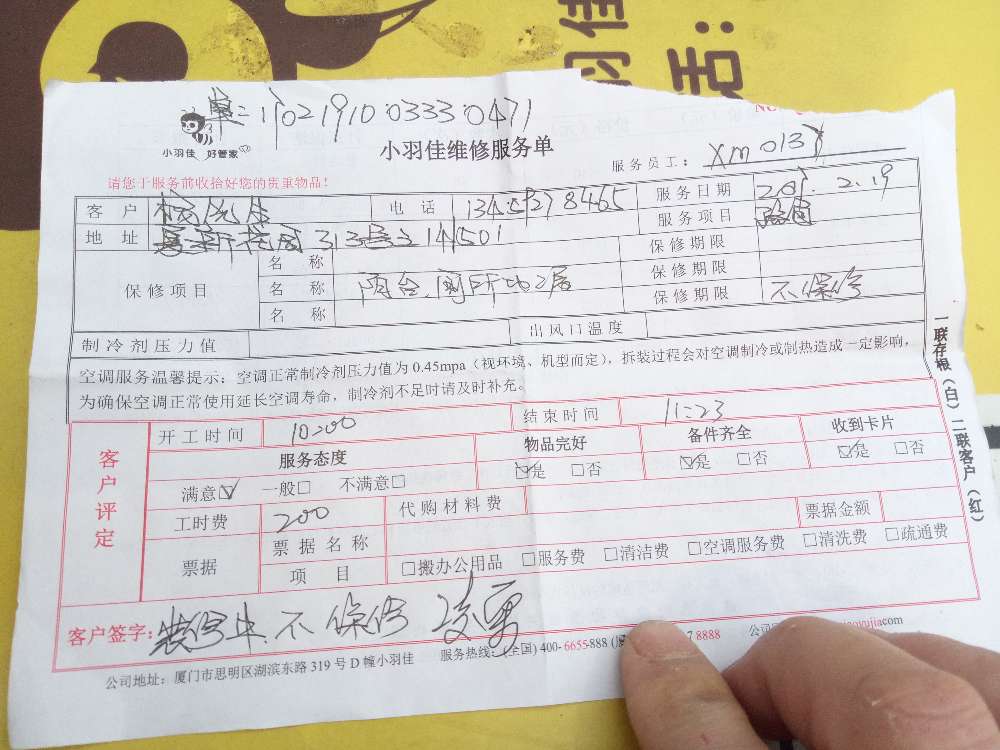 单=1021910033304​71
小羽佳 好管家
小羽佳维修服务单
服务员工：
请您于服务前收拾好您的贵重物品！
客 户 电 话 服务日期 2.19
地 址 313号之14 501 服务项目
名 称 保修期限
保修项目 名 称 保修期限
名 称 保修期限 不保修
制冷剂压力值 出风口温度
空调服务温馨提示：空调正常制冷剂压力值为 0.45mpa（视环境、机型而定），拆装过程会对空调制冷或制热造成一定影响，
为确保空调正常使用延长空调寿命，制冷剂不足时请及时补充。
一联存根（白）二联客户（红）
客户评定
开工时间 10:00 结束时间 11:23
服务态度 物品完好 备件齐全 收到卡片
满意☑ 一般□ 不满意□ ☑是 □否 ☑是 □否 ☑是 □否
工时费 200 代购材料费 票据金额
票据 票据名称
项 目 □搬办公用品 □服务费 □清洁费 □空调服务费 □清洗费 □疏通费
客户签字: 不保修
公司地址：厦门市思明区湖滨东路 319 号 D 幢小羽佳 服务热线：(全国) 400-6655-888 8888